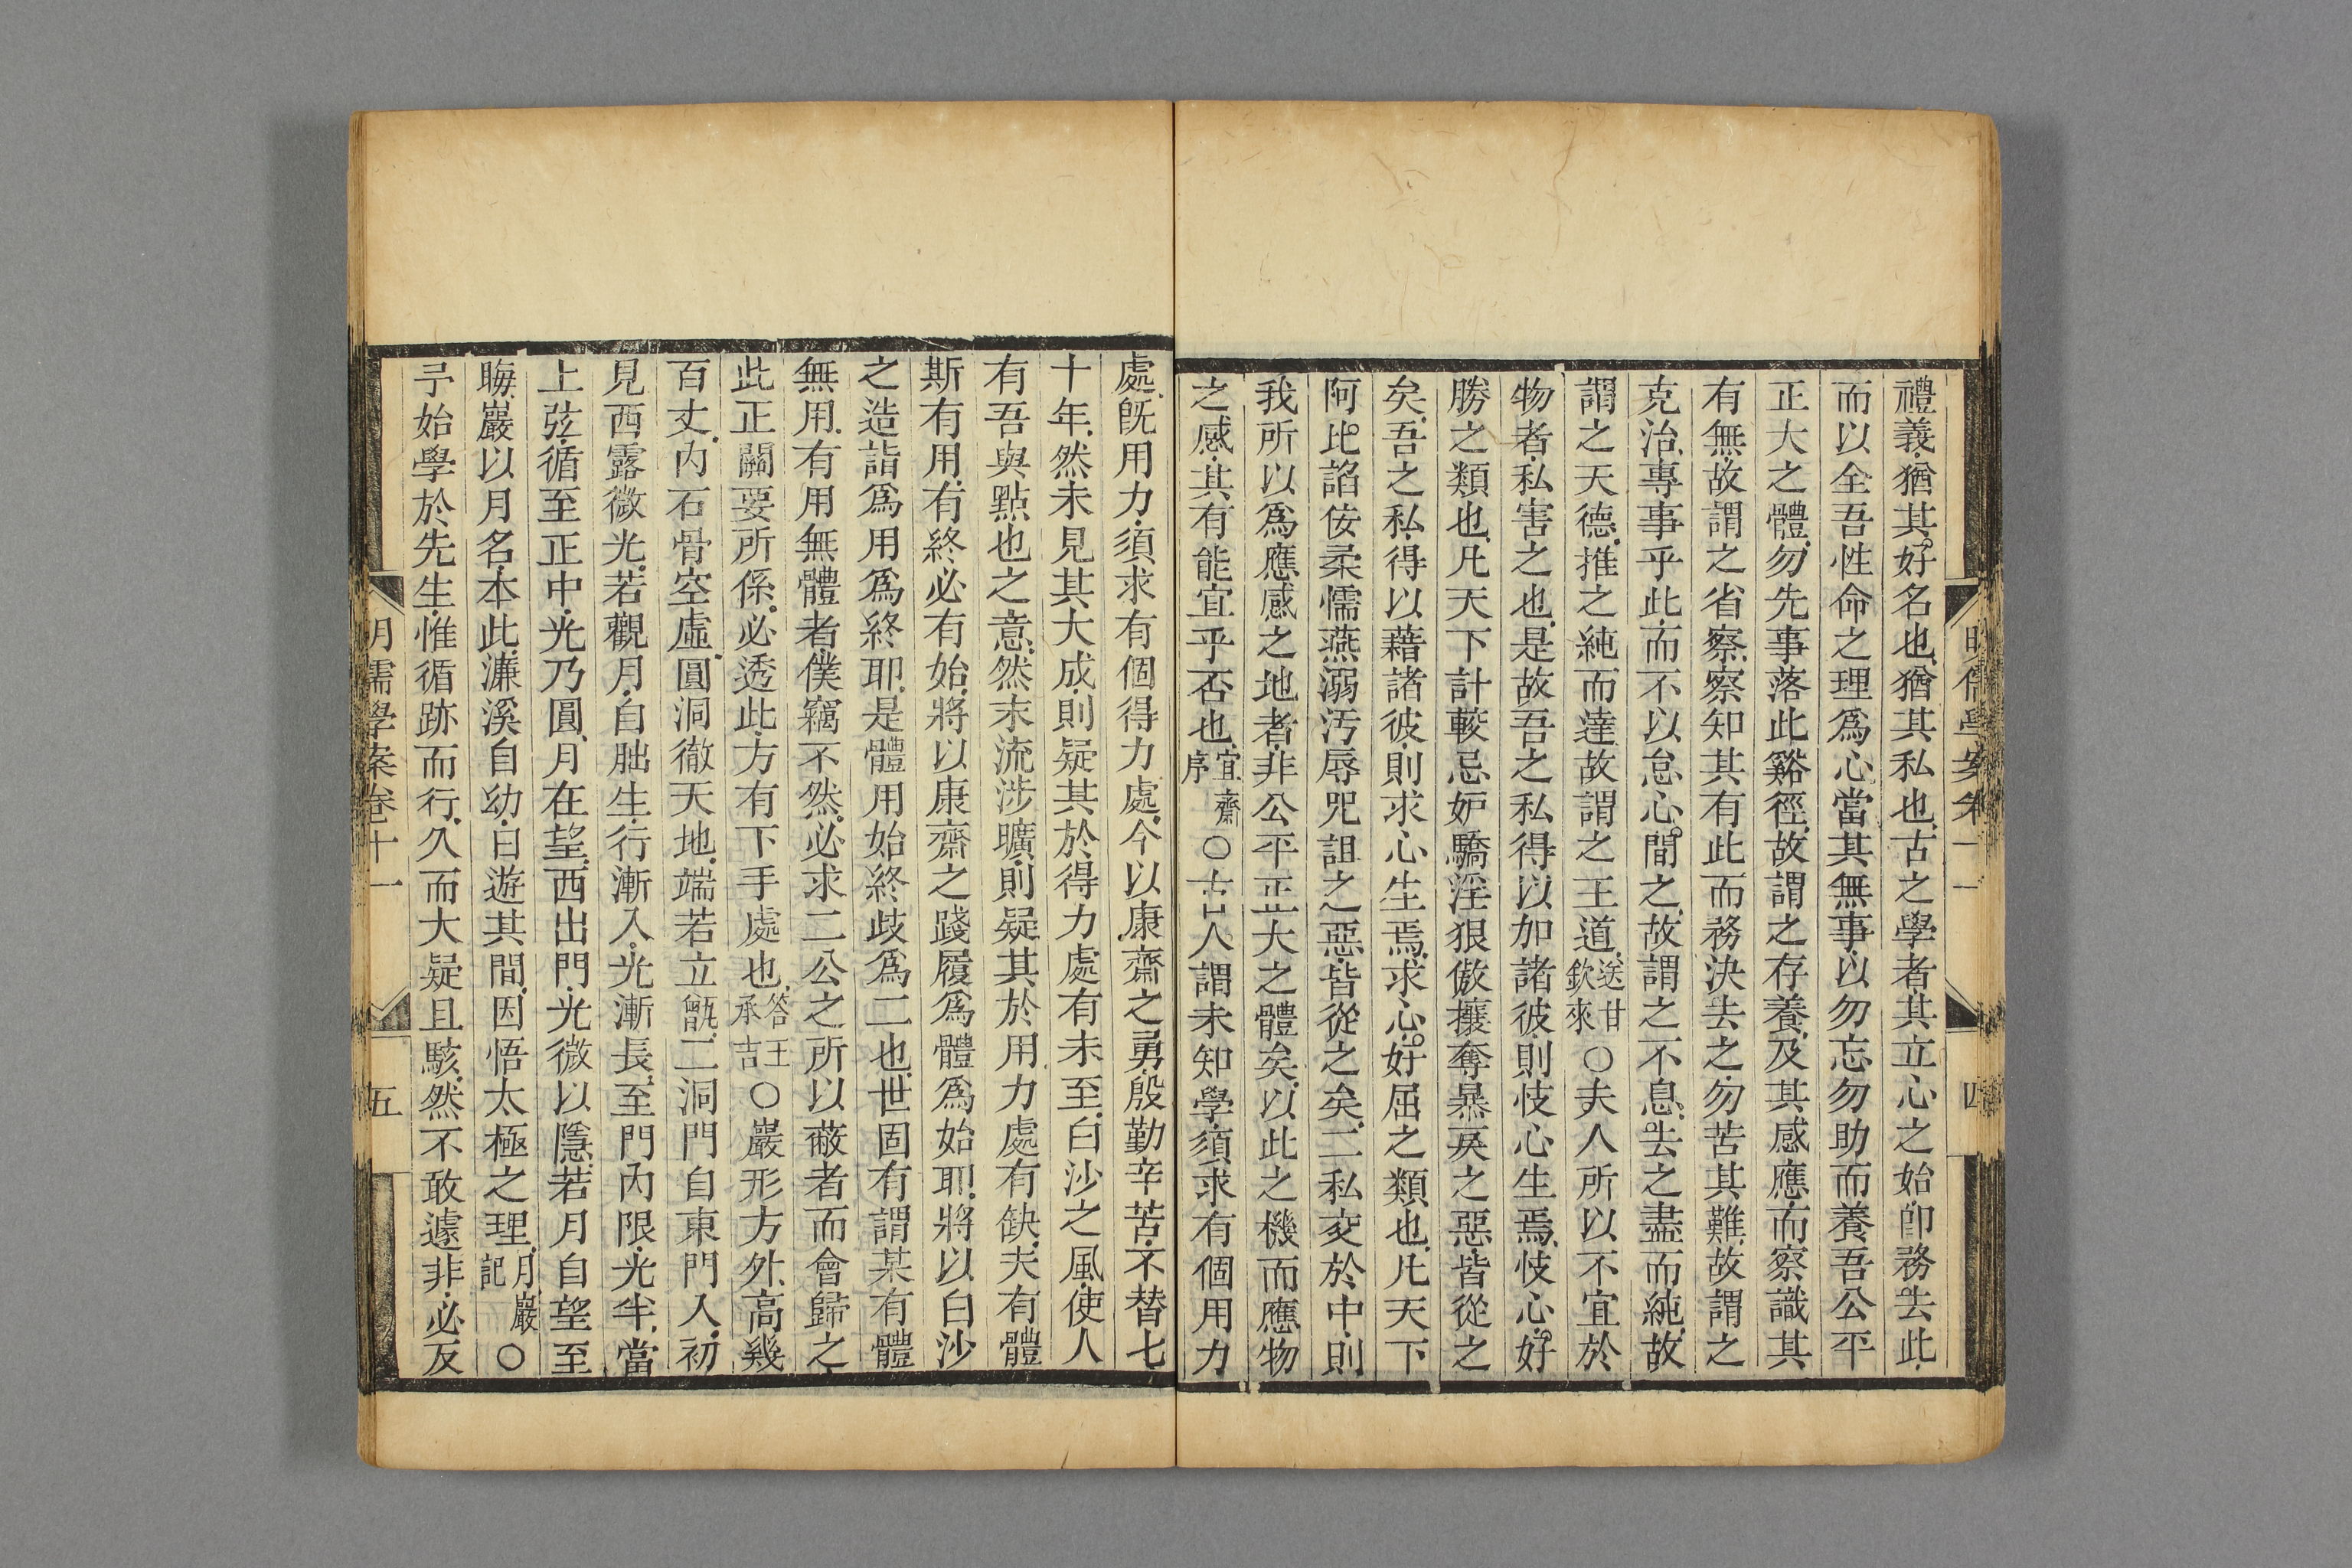 禮義猶其好名也猶其私也古之學者其立心之始卽務去此
而以全吾性命之理爲心當其無事以勿忘勿助而養吾公平
正大之體勿先事落此谿徑故謂之存養及其感應而察識其
有無故謂之省察察知其有此而務決去之勿苦其難故謂之
克治專事乎此而不以怠心間之故謂之不息去之盡而純故
謂之天德推之純而達故謂之王道送甘欽來○夫人所以不宜於
物者私害之也是故吾之私得以加諸彼則忮心生焉忮心好
勝之類也凡天下計較忌妒驕淫狠傲攘奪暴戾之惡皆從之
矣吾之私得以藉諸彼則求心生焉求心好屈之類也凡天下
阿比諂佞柔懦燕溺汚辱咒詛之惡皆從之矣二私交於中則
我所以爲應感之地者非公平正大之體矣以此之機而應物
之感其有能宜乎否也宜齋序○古人謂未知學須求有個用力
處旣用力須求有個得力處今以康齋之勇殷勤辛苦不替七
十年然未見其大成則疑其於得力處有未至白沙之風使人
有吾與點也之意然末流涉曠則疑其於用力處有缺夫有體
斯有用有終必有始將以康齋之踐履爲體爲始耶將以白沙
之造詣爲用爲終耶是體用始終歧爲二也世固有謂某有體
無用有用無體者僕竊不然必求二公之所以蔽者而會歸之
此正關要所係必透此方有下手處也答王承吉○巖形方外高幾
百丈內石骨空虛圓洞徹天地端若立甑二洞門自東門入初
見西露微光若觀月自朏生行漸入光漸長至門內限光半當
上弦循至正中光乃圓月在望西出門光微以隱若月自望至
晦巖以月名本此濂溪自幼日遊其間因悟太極之理月巖記○
予始學於先生惟循跡而行久而大疑且駭然不敢遽非必反
明儒學案卷十一
五